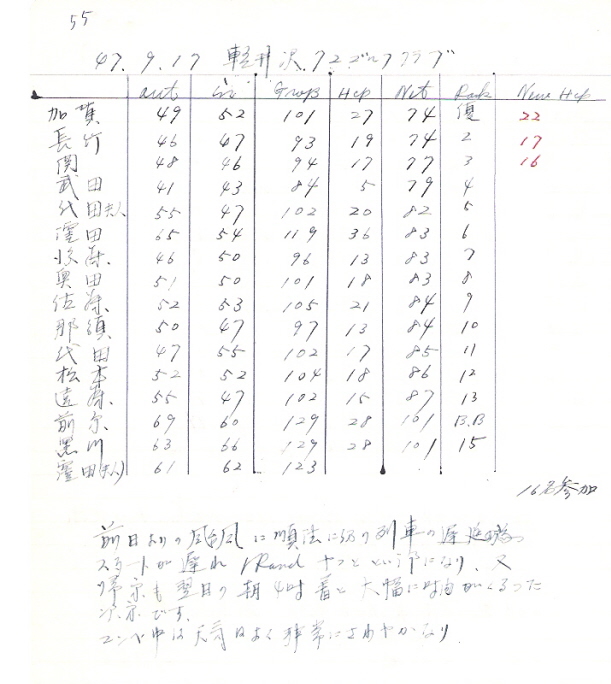 55
47. 9. 17 軽井沢 72ゴルフクラブ
out in Gross Hcp Net Rank New Hcp
加賀 49 52 101 27 74 優 22
長竹 46 47 93 19 74 2 17
関 48 46 94 17 77 3 16
武田 41 43 84 5 79 4
代田夫人 55 47 102 20 82 5
窪田 65 54 119 36 83 6
46 50 96 13 83 7
奥田 51 50 101 18 83 8
佐藤 52 53 105 21 84 9
那須 50 47 97 13 84 10
代田 47 55 102 17 85 11
松本 52 52 104 18 86 12
遠藤 55 47 102 15 87 13
前 69 60 129 28 101 B.B
黒川 63 66 129 28 101 15
窪田(夫人) 61 62 123
16名参加
前日よりの颱風に 列車の遅延の為
スタートが遅れ 1Rand となり、又
帰京も翌日の朝4時着と大幅に時間がくるった
次第です。
コンペ中は天気はよく非常にさわやかなり